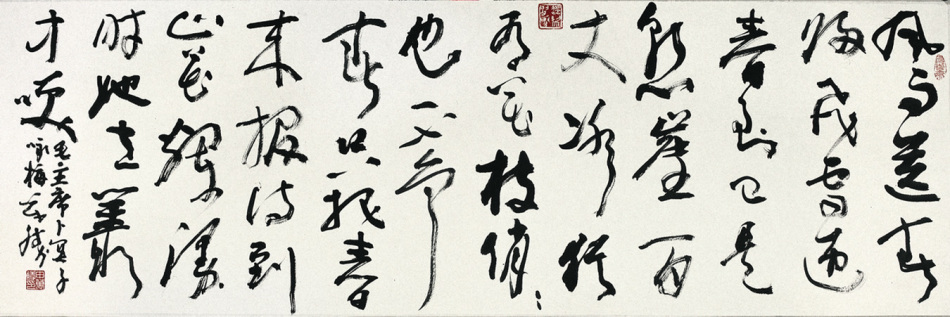 風雨送春
歸飛雪迎
春到已是
懸崖百
丈冰犹
有花枝俏〻
也不爭
春只把春
来报待到
山花爛漫
时她在叢
中笑
毛主席卜算子
咏梅